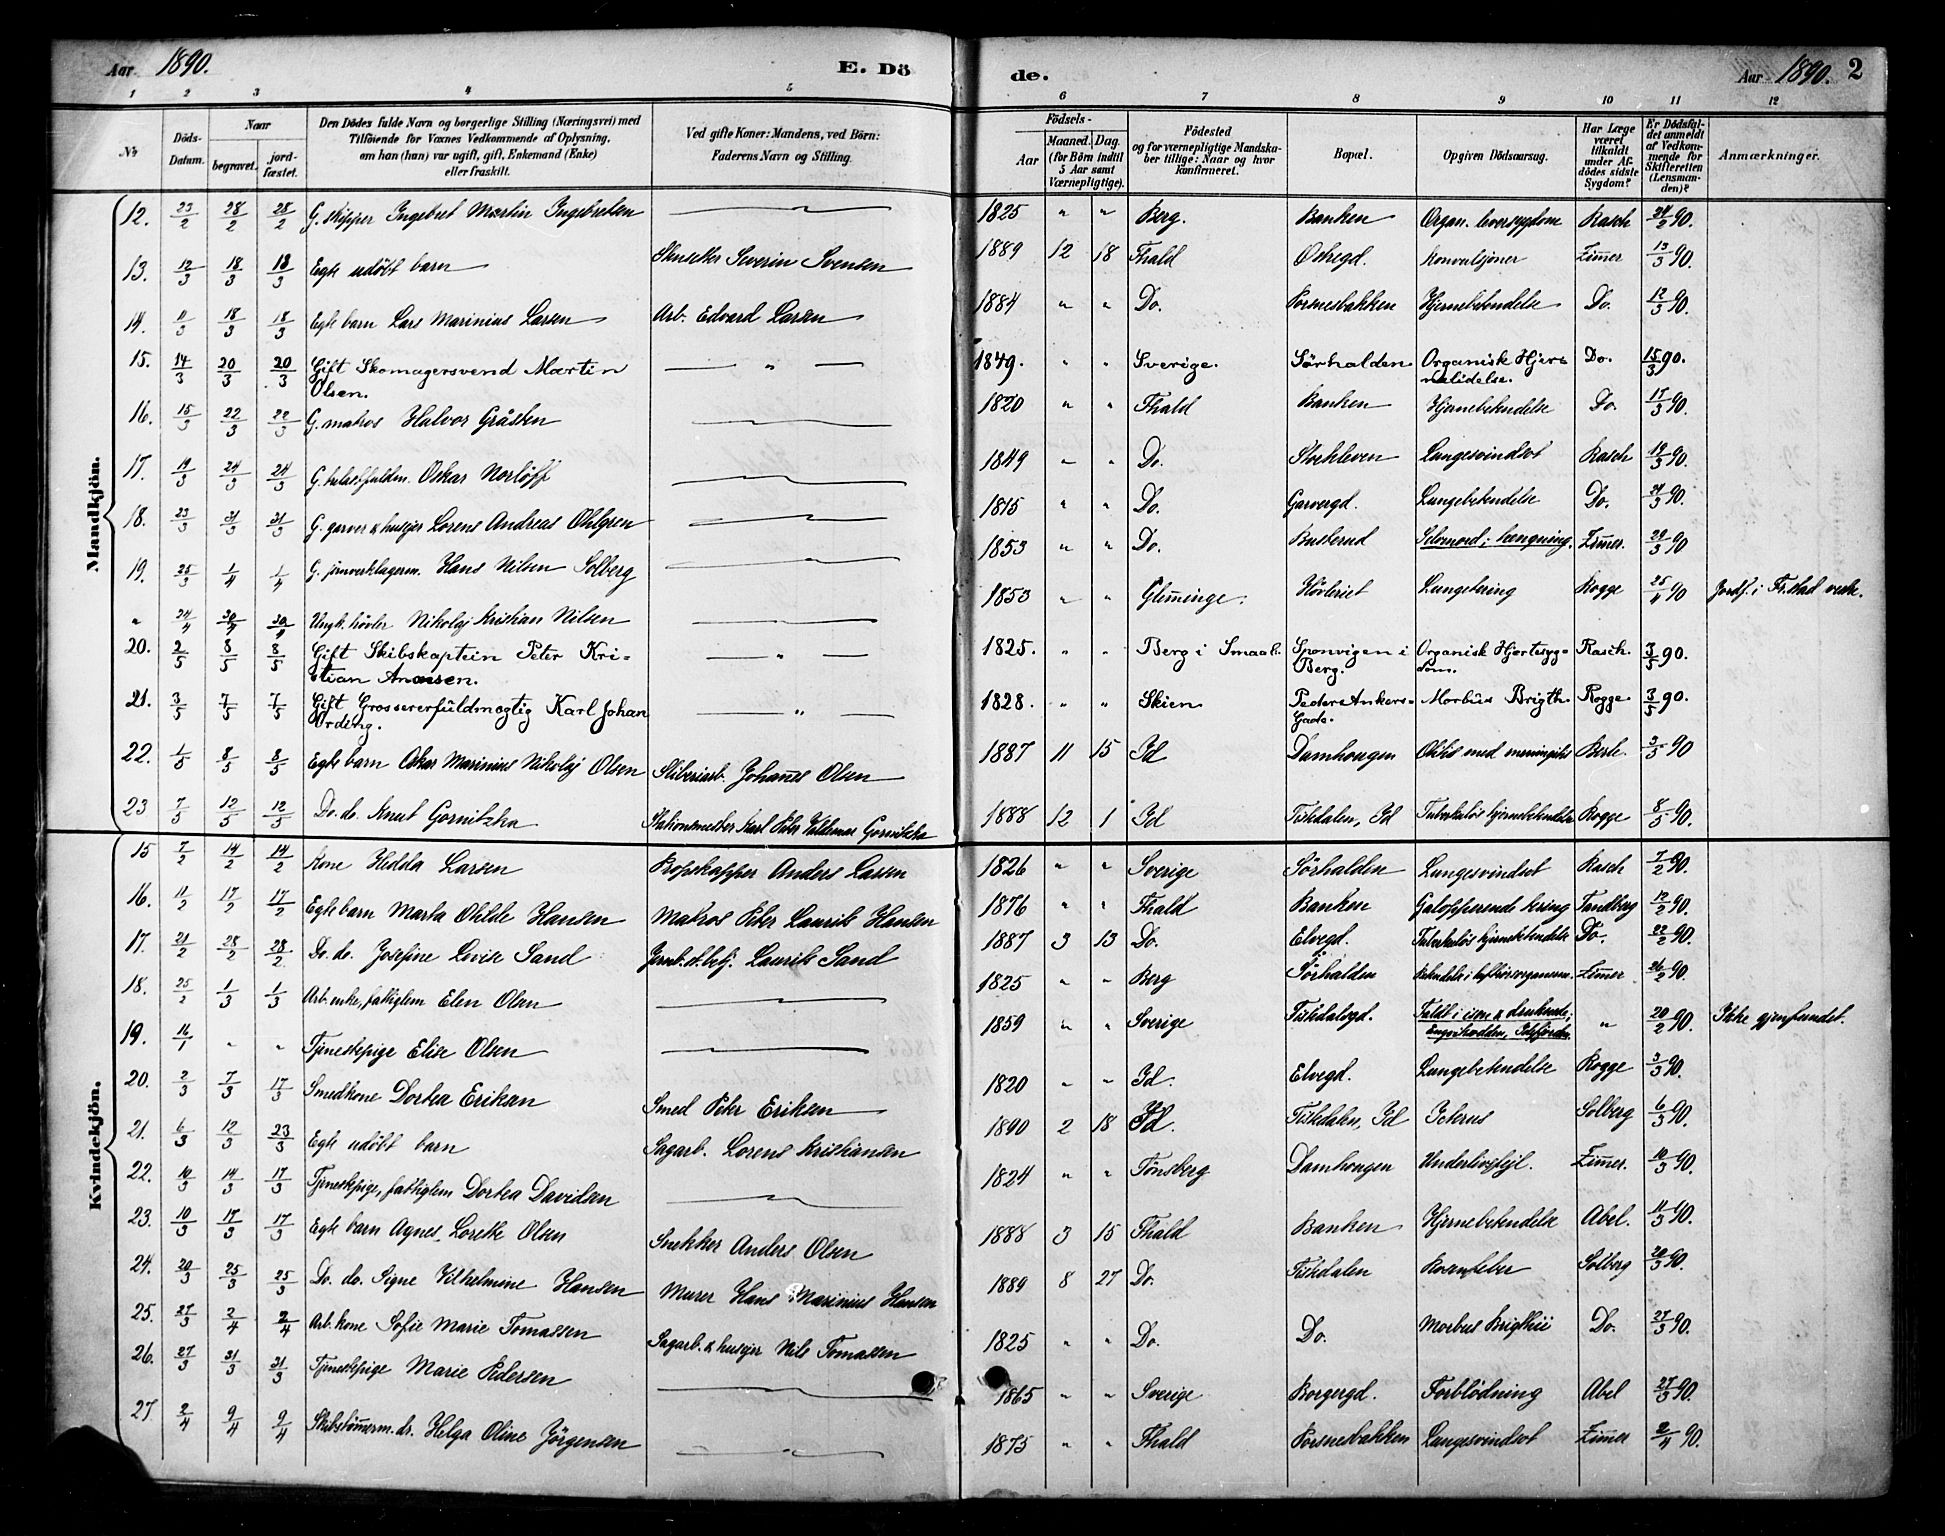 Aar 1890. E. Dö de. Aar 1890. 2
1 2 3 4 5 6 7 8 9 10 11 12
No
Döds-Datum.
Naar
begravet.
jordfæstet.
Den Dödes fulde Navn og borgerlige Stilling (Næringsvei) med
Tilföiende for Voxnes Vedkommende af Oplysning,
om han (hun) var ugift, gift, Enkemand (Enke)
eller fraskilt.
Ved gifte Koner: Mandens, ved Börn:
Faderens Navn og Stilling.
Födsels-
Aar
Maaned. Dag.
(for Börn indtil
5 Aar samt
Værnepligtige).
Födested
og for værnepligtige Mandska-
ber tillige: Naar og hvor
konfirmeret.
Bopæl.
Opgiven Dödsaarsag.
Har Læge
været
tilkaldt
under Af-
dödes sidste
Sygdom?
Er Dödsfal-
det anmeldt
af Vedkom-
mende for
Skifteretten
(Lensman-
den)?
Anmærkninger.
Mandkjön.
12. 23/2 28/2 28/2 G. skipper Ingebret Martin Ingebretsen 1825 " " Berg. Banken Organ. leversygdom Rasch 24/2 90.
13. 12/3 18/3 18/3 Egte udöbt barn Severin Svensen 1889 12 18 Fhald Ostregd. Konvulsjoner Zimer 13/3 90.
14. 11/3 18/3 18/3 Egte barn Lars Marinius Larsen Arb. Edvard Larsen 1884 " " Do. Porsnesbakken Hjernebetendelse Do. 12/3 90.
15. 14/3 20/3 20/3 Gift Skomagersvend Martin Olsen. " 1849. " " Sverige. Sörhalden Organisk Hjernelidelse. Do. 15/3 90.
16. 15/3 22/3 22/3 G. matros Halvor Gråsten 1820 " " Fhald Banken Hjernebetendelse Do. 17/3 90.
17. 19/3 24/3 24/3 G. Oskar Norlöff 1849 " " Do. Stokkleven Lungesvindsot Rasch 19/3 90.
18. 23/3 31/3 31/3 G. garver & husejer Lorens Andreas Ohlgren 1815 " " Do. Garvergd. Lungebetendelse Do. 24/3 90.
19. 25/3 1/4 1/4 G. jernverklagerm. Hans Nilsen Solberg 1853 " " Do. Busterud Selvmord; hengning. Zimer. 29/3 90
" 24/4 30/4 30/4 Ungk. hövler Nikolaj Kristian Nilsen 1853 " " Glemminge. Hövleriet Lungetering Rogge 25/4 90 Jordf. i Fr.stad
20. 2/5 8/5 8/5 Gift Skibskaptein Peter Kristian Arnesen. " 1825. " " Berg i Smaal. Sponvigen i Berg. Organisk Hjertesygdom. Rasch. 3/5 90.
21. 3/5 7/5 7/5 Gift Grossererfüldmægtig Karl Johan Ordeng. " 1828. " " Skien Peder Ankers-Gade. Morbus Brigth. Rogge 3/5 90.
22. 1/5 8/5 8/5 Egte barn Oskar Marinius Nikolaj Olsen Sliberiarb. Johannes Olsen 1887 11 15 Id Damhougen Otitis med meningitis Berle. 3/5 90
23 7/5 12/5 12/5 Do. do. Knut Gornitzka Stationsmester Karl Peter Valdemar Gornitzka 1888 12 1 Id Tistedalen, Id Tuberkulös hjernebetendelse Rogge 8/5 90.
Kvindekjön.
15 7/2 14/2 14/2 Kone Hedda Larsen Anders Larsen 1826 " " Sverige Sörhalden Lungesvindsot Rasch 7/2 90.
16. 11/2 17/2 17/2 Egte barn Marta Otilde Hansen Matros Peter Laurits Hansen 1876 " " Fhald Banken Galopperende tering Tandberg 12/2 90.
17. 21/2 28/2 28/2 Do. do. Josefine Lovise Sand Jernb. Laurits Sand 1887 3 13 Do. Elvegd. Tuberkulös hjernebetendelse Do. 22/2 90.
18. 25/2 1/3 1/3 Arb. enke, fattiglem Elen Olsen 1825 " " Berg Sörhalden Betendelse i luftrörsorganerne. Zimer 26/2 90.
19. 16/1 " " Tjenestepige Elise Olsen 1859 " " Sverige Tistedalsgd. Faldt i isen & druknede; Idefjorden " 20/2 90. Ikke gjenfundet.
20. 2/3 7/3 17/3 Smedkone Dortea Eriksen Smed Peter Eriksen 1820 " " Id. Elvegd. Lungebetendelse Rogge 3/3 90.
21. 6/3 12/3 23/3 Egte udöbt barn Sagarb. Lorens Kristiansen 1890 2 18 Id. Tistedalen, Id Icterus Solberg 6/3 90.
22. 10/3 14/3 17/3 Tjenestepige, fattiglem Dortea Davidsen 1824 " " Tönsberg Damhougen Underlivsfejl. Zimer. 10/3 90.
23. 10/3 17/3 17/3 Egte barn Agnes Lorette Olsen Snekker Anders Olsen 1888 3 15 Fhald Banken Hjernebetendelse Abel. 11/3 90.
24. 20/3 25/3 25/3 Do. do. Signe Vilhelmine Hansen Murer Hans Marinius Hansen 1889 8 27 Do. Tistedalen Rosenfeber Solberg 20/3 90.
25. 27/3 2/4 2/4 Arb. kone Sofie Marie Tomassen Sagarb. & husejer Nils Tomassen 1825 " " Do. Do. Morbus Brigthii Do. 27/3 90.
26. 27/3 31/3 31/3 Tjenestepige Marie Pedersen 1865 " " Sverige Borgergd. Forblödning Abel 27/3 90.
27 2/4 9/4 9/4 Skibstömerm. dr. Helga Oline Jörgensen 1875 " " Fhald Porsnesbakken Lungesvindsot Zimer 2/4 90.